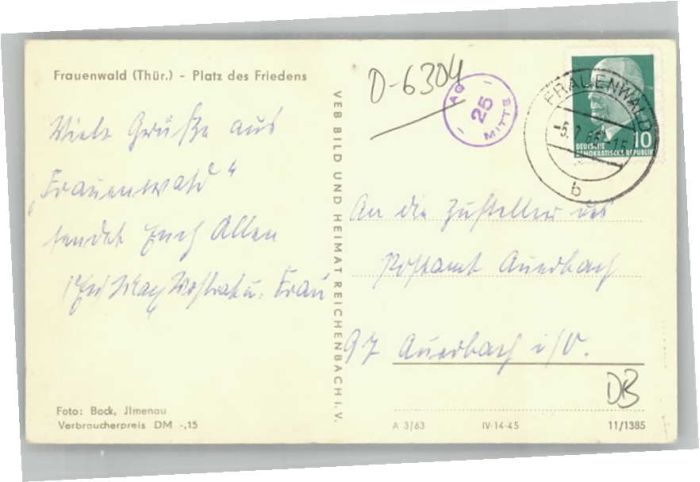 Frauenwald (Thür.) - Platz des Friedens
Viele Grüße aus
„Frauenwald“
sendet Euch Allen
u. Frau
VEB BILD UND HEIMAT REICHENBACH I. V.
D-6304
AG
25
MITTE
FRAUENWALD
b
10
DEUTSCHE
DEMOKRATISCHE REPUBLIK
An die Zusteller des
Postamt Auerbach
97 Auerbach i/V.
DB
Foto: Bock, Jlmenau
Verbraucherpreis DM -,15
A 3/63 IV-14-45 11/1385